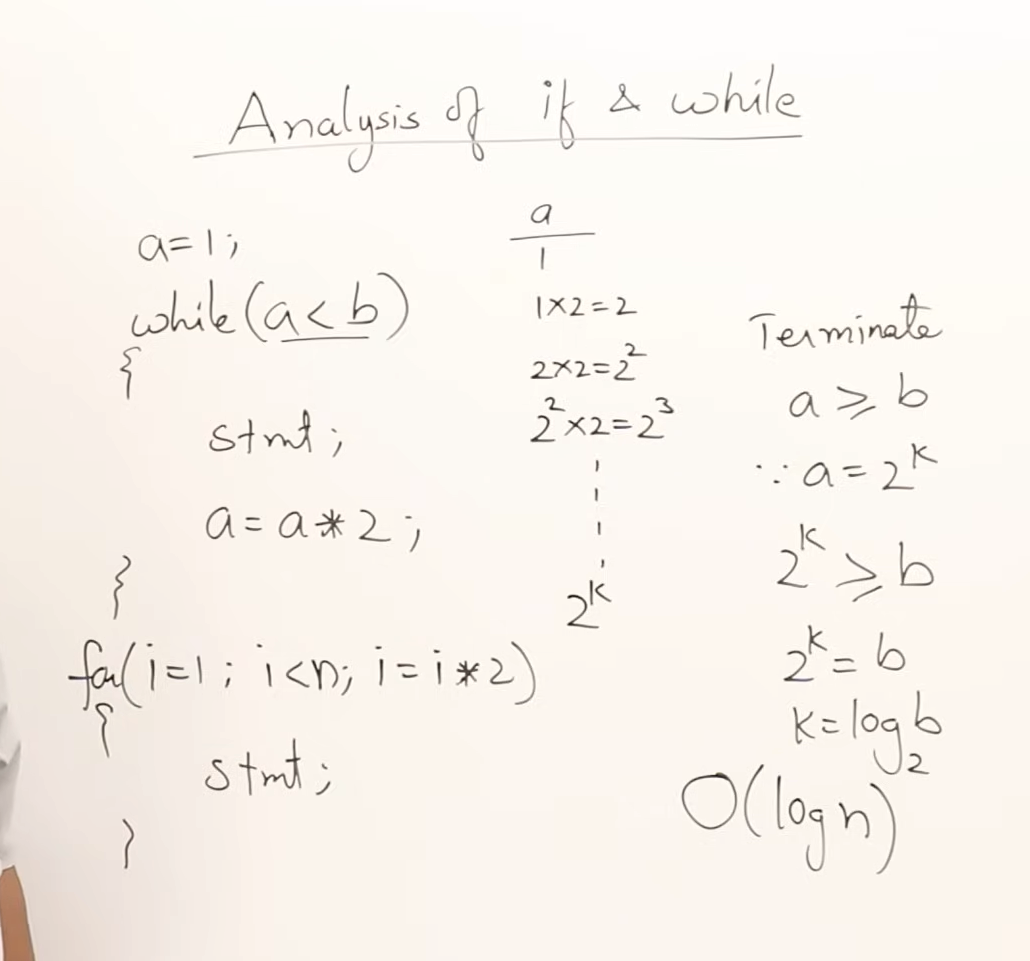 Analysis of if & while
a=1;
while(a<b)
{
stmt;
a=a*2;
}
for(i=1; i<n; i=i*2)
{
stmt;
}
a
1
1×2=2
2×2=2²
2²×2=2³
2ᵏ
Terminate
a ⩾ b
∵ a = 2ᵏ
2ᵏ ⩾ b
2ᵏ = b
k = log₂b
O(log n)